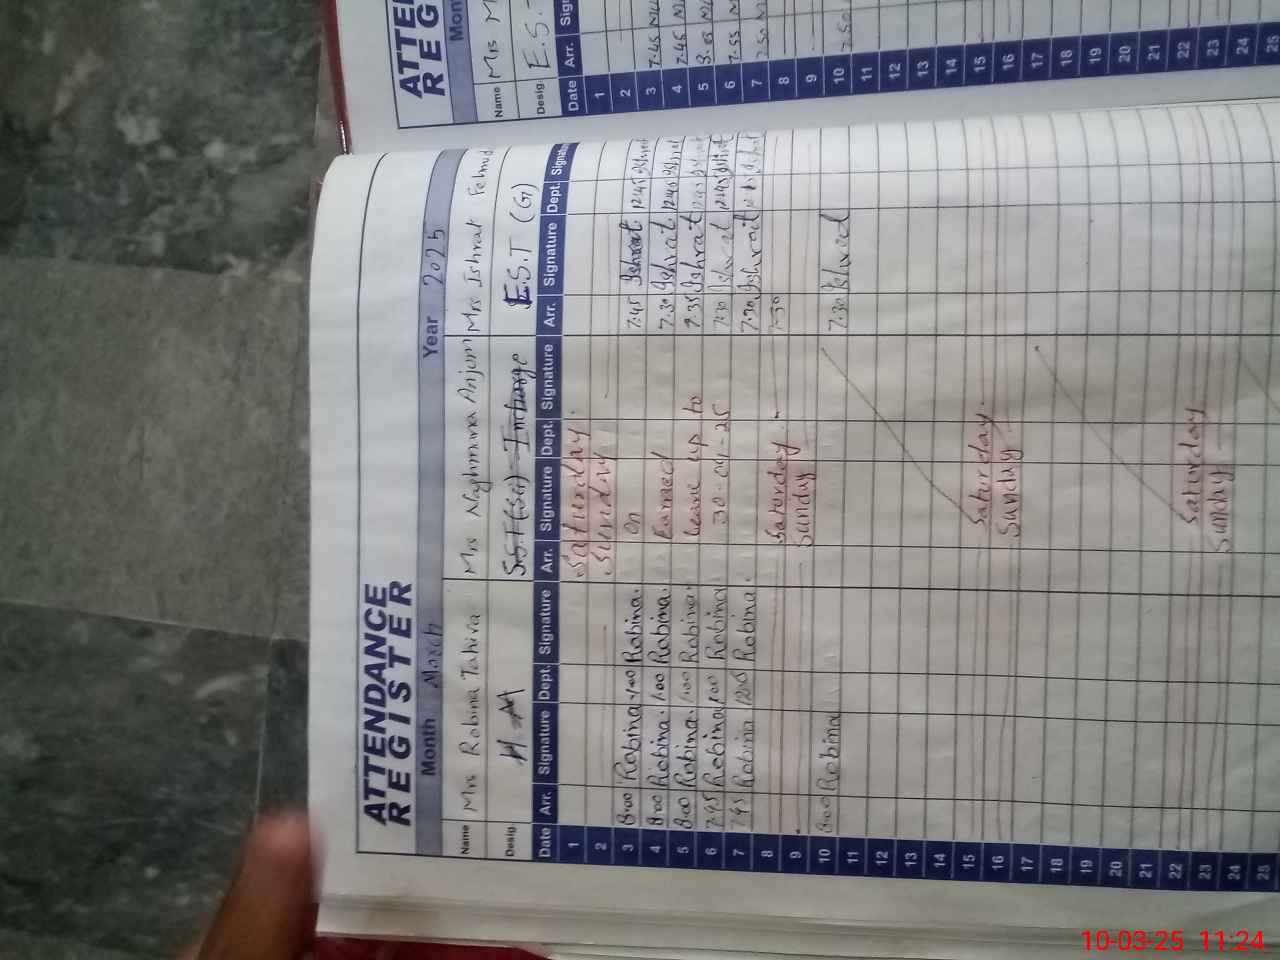 ATTENDANCE
REGISTER
Month March Year 2025
Name Mrs Robina Tahira Mrs Naghmana Anjum Mrs Ishrat
Desig. H.M S.S.T(SG) Incharge E.S.T (G)
Date Arr. Signature Dept. Signature Arr. Signature Dept. Signature Arr. Signature Dept. Signature
1 Saturday
2 Sunday
3 8:00 Robina 1:00 Robina. On 7:45 Ishrat 12:45 Ishrat
4 8:00 Robina. 1:00 Robina. Earned 7:30 Ishrat 12:45 Ishrat
5 8:00 Robina. 1:00 Robina. Leave up to 7:35 Ishrat 12:45 Ishrat
6 7:45 Robina 1:00 Robina 30-04-25 7:30 Ishrat 12:45 Ishrat
7 7:45 Robina 12:05 Robina. 7:30 Ishrat Ishrat
8 Saturday 7:30
9 Sunday
10 8:00 Robina 7:30 Ishrat
11
12
13
14
15 Saturday
16 Sunday
17
18
19
20
21
22 Saturday
23 Sunday
24
25
REG
Name Mrs
Desig. E.S.T
Date Arr.
1
2
3 7:45
4 7:45
5 8:05
6 7:55
7 7:50
8
9
10 7:50
11
12
13
14
15
16
17
18
19
20
21
22
23
24
25
10-03-25 11:24